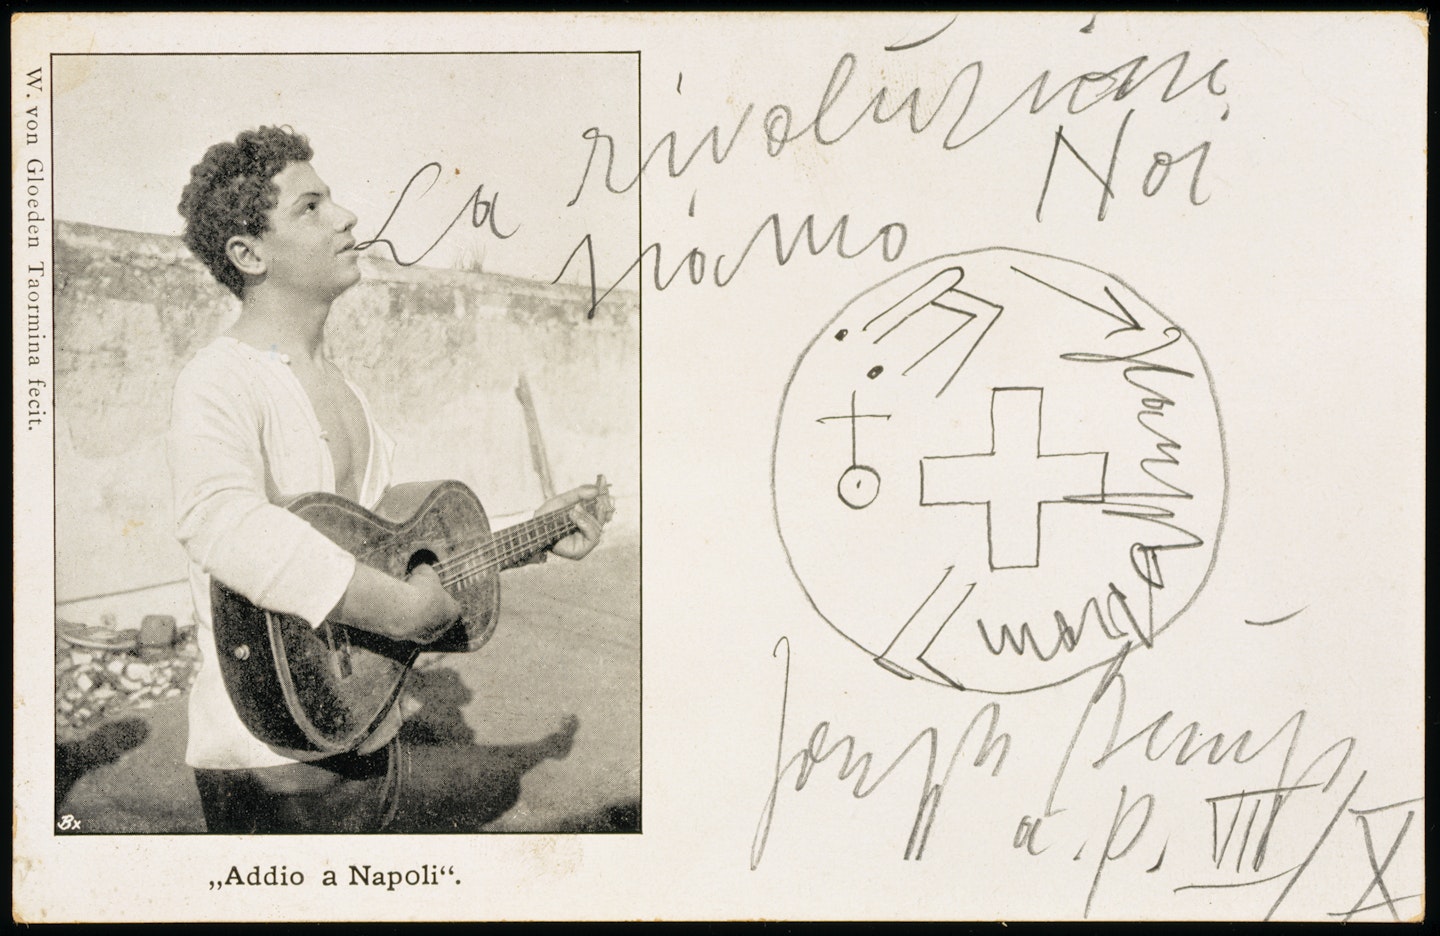 W. von Gloeden Taormina fecit.
La rivoluzione
siamo Noi
Hauptstrom
Joseph Beuys
a.p. VII/X
Bx
„Addio a Napoli“.